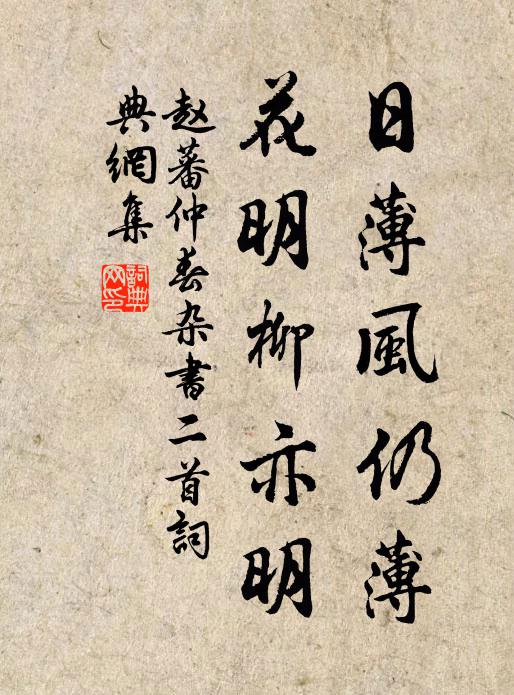 日薄風仍薄
花明柳亦明
赵蕃仲春杂書二首詞
典網集
詞典
网印